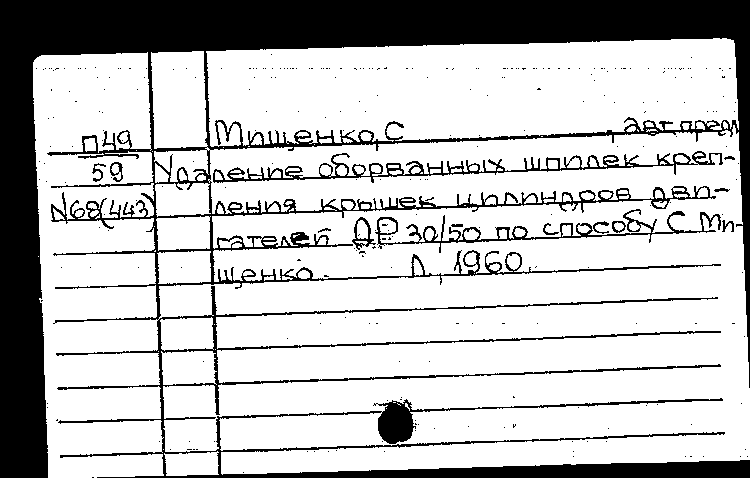 П49 Мищенко, С , авт. предл
59 Удаление оборванных шпилек креп-
N68(443) ления крышек цилиндров дви-
гателей ДР 30/50 по способу С Ми-
щенко. Л, 1960.